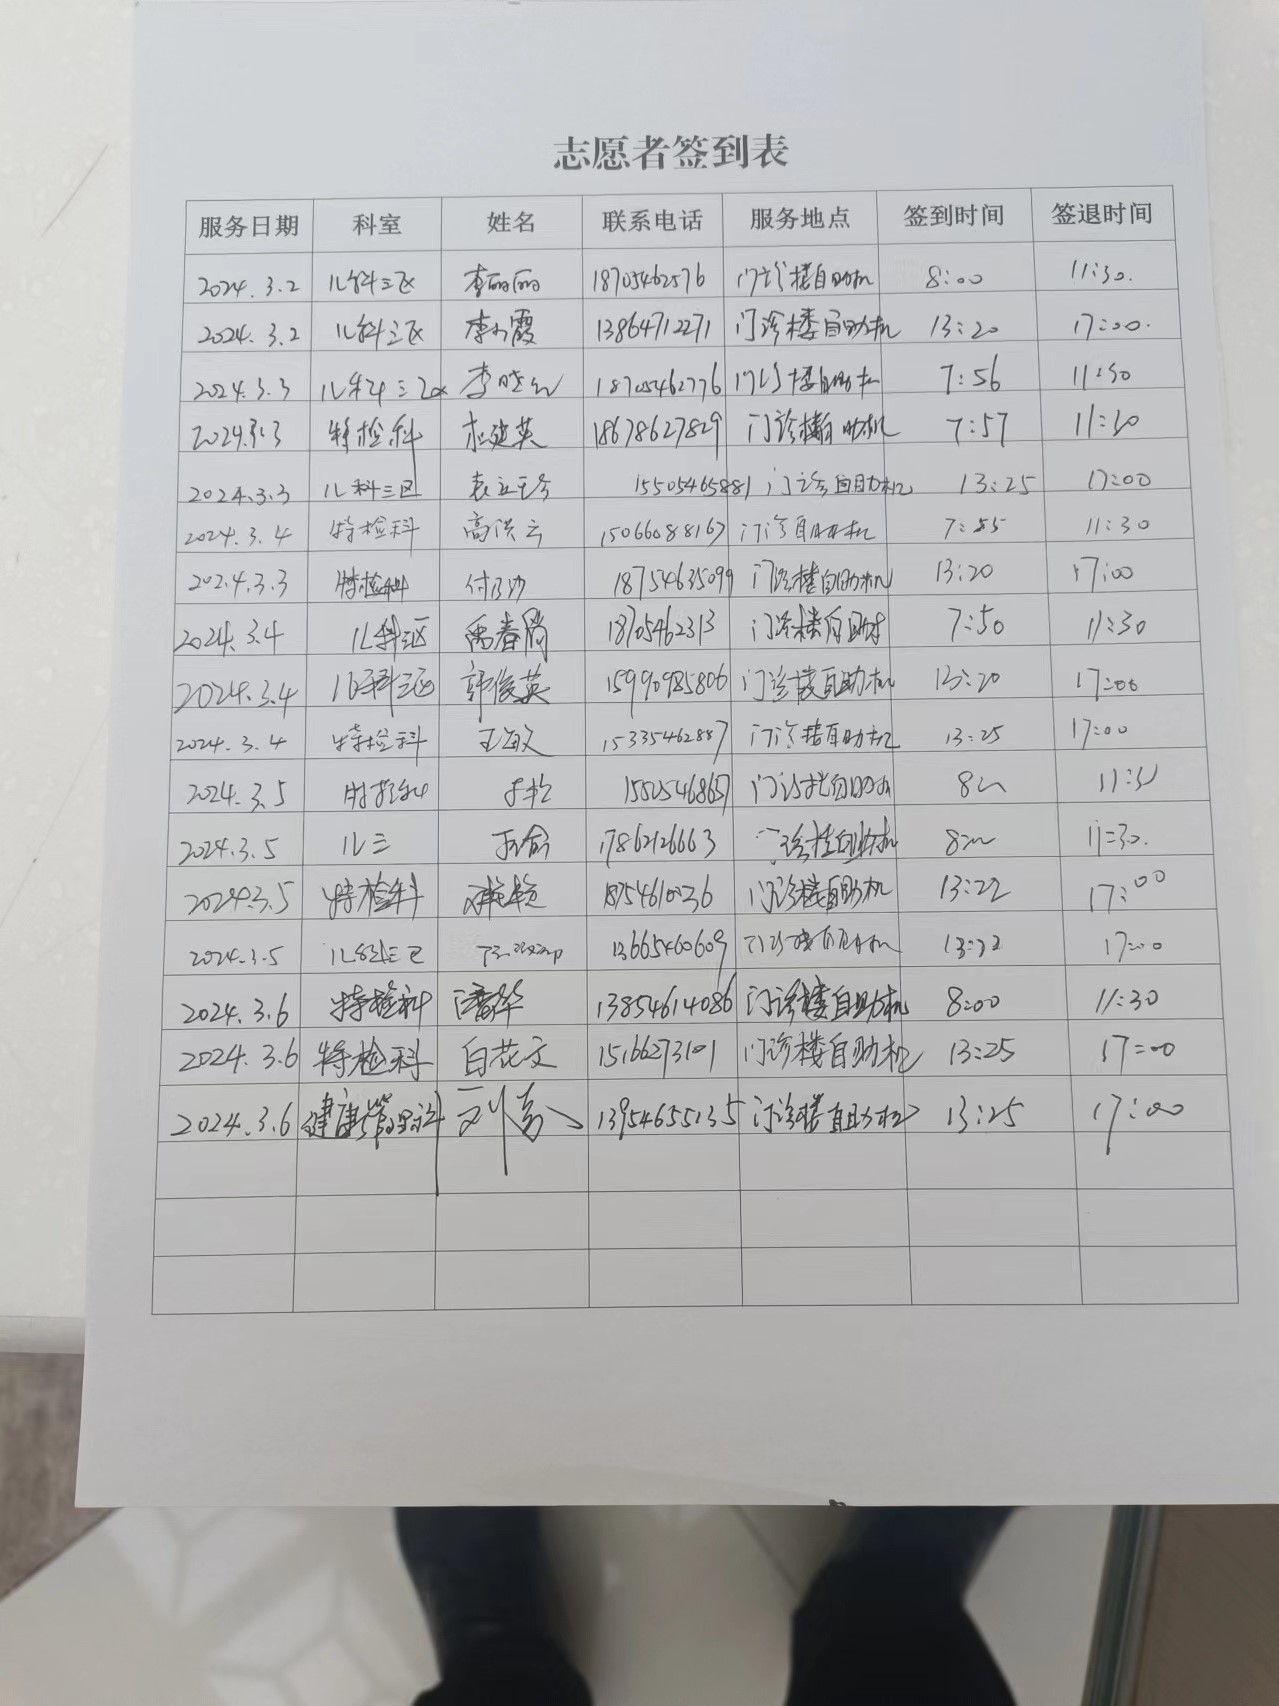 志愿者签到表
服务日期 科室 姓名 联系电话 服务地点 签到时间 签退时间
2024.3.2 儿科三区 李丽丽 18705462576 门诊楼自助机 8:00 11:30.
2024.3.2 儿科三区 李小霞 13864712271 门诊楼自助机 13:20 17:00.
2024.3.3 儿科三区 李晓红 18705462776 门诊楼自助机 7:56 11:30
2024.3.3 特检科 杜建英 18678627829 门诊楼自助机 7:57 11:20
2024.3.3 儿科三区 15505465881 门诊自助机 13:25 17:00
2024.3.4 特检科 高洪云 15066088167 门诊自助机 7:55 11:30
2024.3.3 特检科 18754635099 门诊楼自助机 13:20 17:00
2024.3.4 儿科三区 18705462313 门诊楼自助 7:50 11:30
2024.3.4 儿科三区 郭俊英 15990985806 门诊楼自助机 13:20 17:00
2024.3.4 特检科 王敏 15335462887 门诊楼自助机 13:25 17:00
2024.3.5 特检科 门诊楼自助机 11:30
2024.3.5 儿三 17862126663 门诊楼自助机 11:30.
2024.3.5 特检科 门诊楼自助机 13:22 17:00
2024.3.5 儿科三区 13665460609 门诊楼自助机 13:22 17:00
2024.3.6 特检科 潘华 13854614086 门诊楼自助机 8:00 11:30
2024.3.6 特检科 白花文 15166273101 门诊楼自助机 13:25 17:00
2024.3.6 健康管理科 13954655135 门诊楼自助机 13:25 17:00